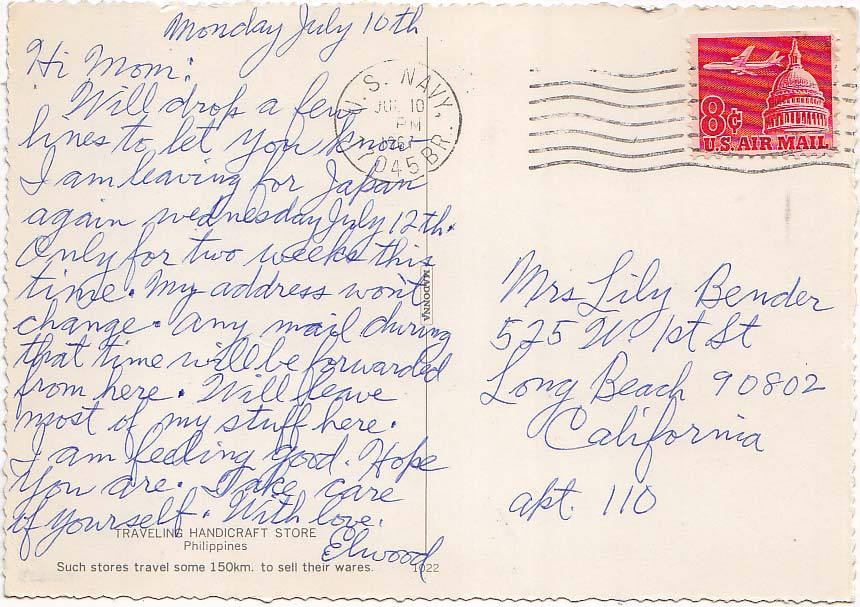 Monday July 10th
Hi Mom:
Will drop a few
lines to let you know
I am leaving for Japan
again wednesday July 12th.
Only for two weeks this
time. My address won't
change. Any mail during
that time will be forwarded
from here. Will leave
most of my stuff here.
I am feeling good. Hope
you are. Take care
of yourself. With love.
Elwood
TRAVELING HANDICRAFT STORE
Philippines
Such stores travel some 150km. to sell their wares.
1022
MADONNA
U.S. NAVY
JUL 10
PM
17045 BR.
8¢
U.S. AIR MAIL
Mrs Lily Bender
525 W. 1st St
Long Beach 90802
California
apt. 110